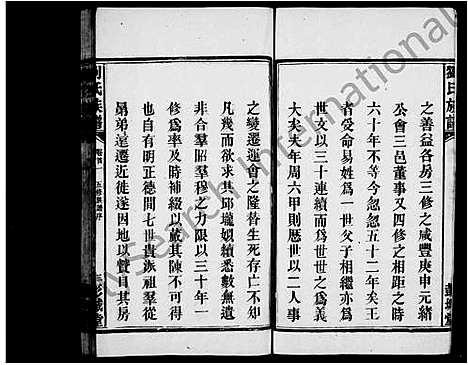 劉氏族譜
之善益各房三修之咸豐庚申元緒
公會三邑董事又四修之相距之時
六十年不等今忽忽五十二年矣王
者受命易姓爲一世父子相繼亦爲一
世文以三十連續而成世之爲義
大矣夫年周六甲則歷世以二人事
之變遷運會之隆替生死存亡不知
凡幾而欲求其邱壠姻續悉數無遺
非合羣昭羣穆之力限以三十年一
修爲率及時補綴以蕆其陳不可得
也自有明正德間七世貴派祖羣從
昴弟遞遷近徙遂因地以贊目其房
劉氏族譜
卷首
五修族譜序
彭城堂
Search International